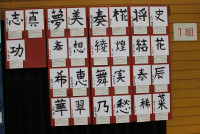 1組
志 真 夢 美 奏 椛 将 史
功 想 綾 煌 結 花
希 恵 舞 実 泰 辰
華 翠 乃 愁 稀 菜